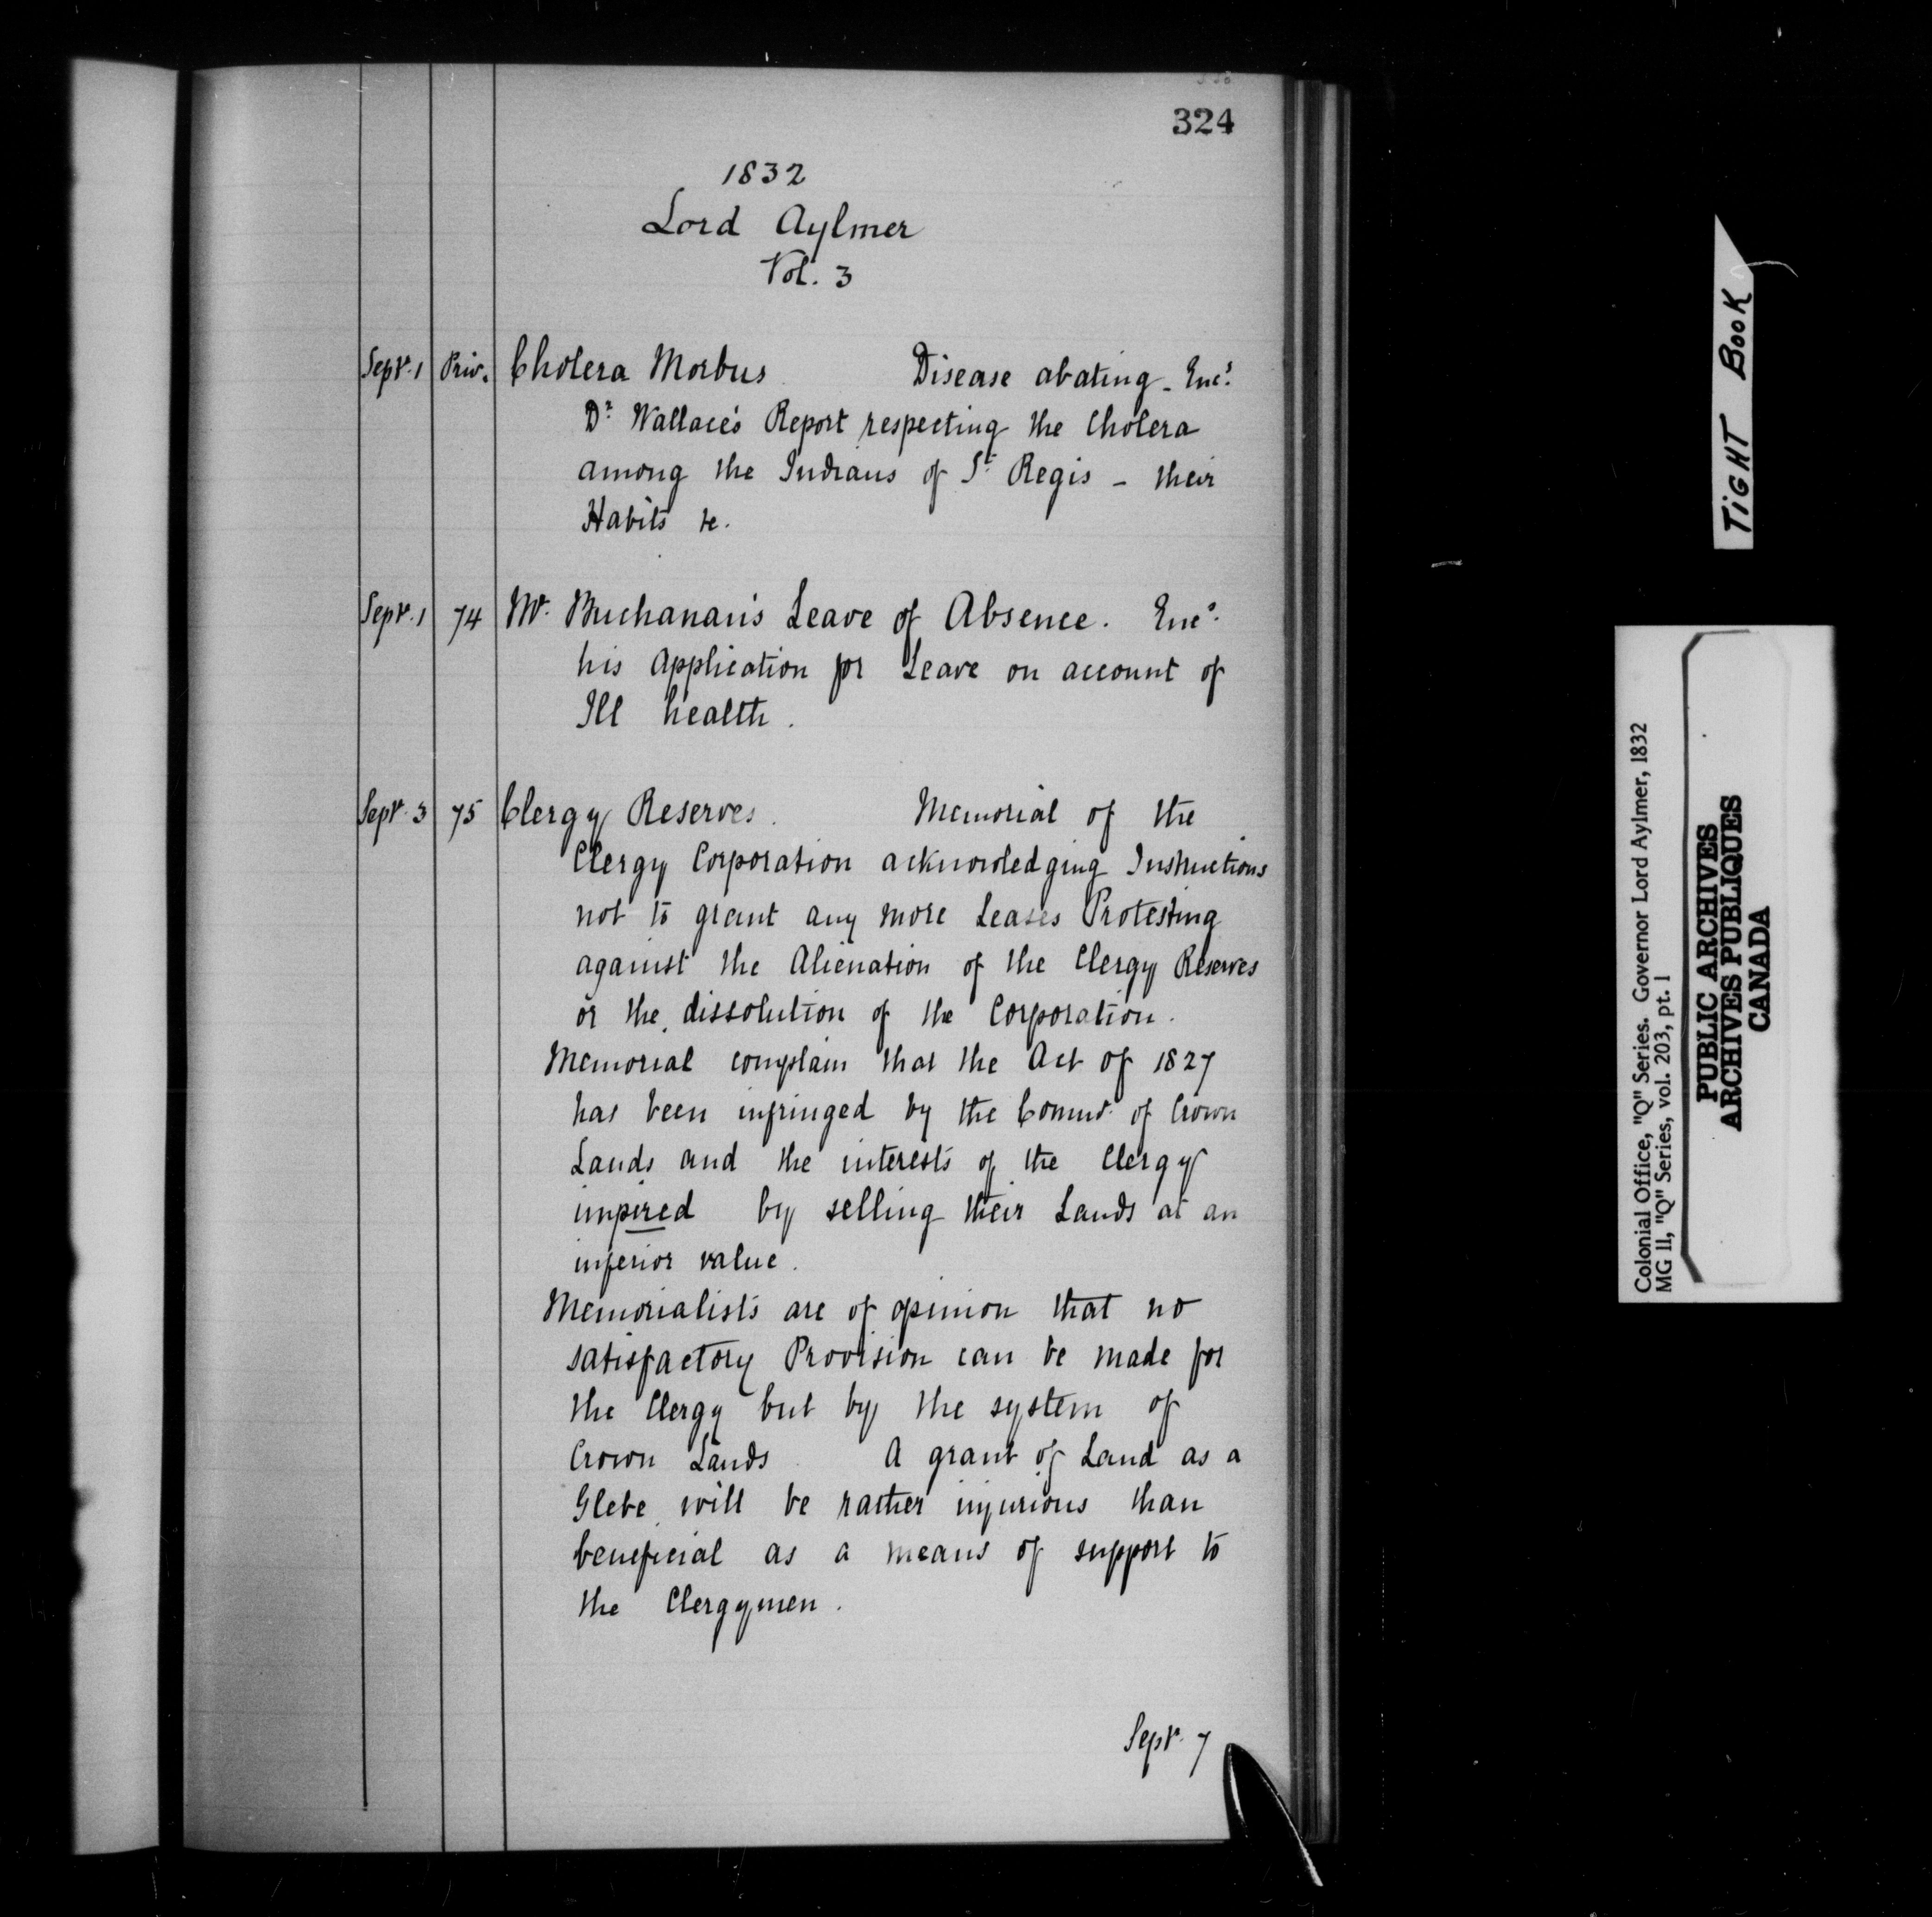 324
1832
Lord Aylmer
Vol. 3
Sept. 1 Priv. Cholera Morbus Disease abating - Encs.
Dr. Wallace's Report respecting the Cholera
among the Indians of St. Regis - their
Habits &c.
Sept. 1 74 Mr. Buchanan's Leave of Absence. Encs.
his Application for Leave on account of
Ill health.
Sept. 3 75 Clergy Reserves. Memorial of the
Clergy Corporation acknowledging Instructions
not to grant any more Leases Protesting
against the Alienation of the Clergy Reserves
or the dissolution of the Corporation.
Memorial complain that the Act of 1827
has been infringed by the Commr. of Crown
Lands and the interests of the Clergy
impired by selling their Lands at an
inferior value.
Memorialists are of opinion that no
satisfactory Provision can be made for
the Clergy but by the system of
Crown Lands. A grant of Land as a
Glebe will be rather injurious than
beneficial as a means of support to
the Clergymen.
Sept. 7
TIGHT BOOK
Colonial Office, "Q" Series. Governor Lord Aylmer, 1832
MG 11, "Q" Series, vol. 203, pt. 1
PUBLIC ARCHIVES
ARCHIVES PUBLIQUES
CANADA